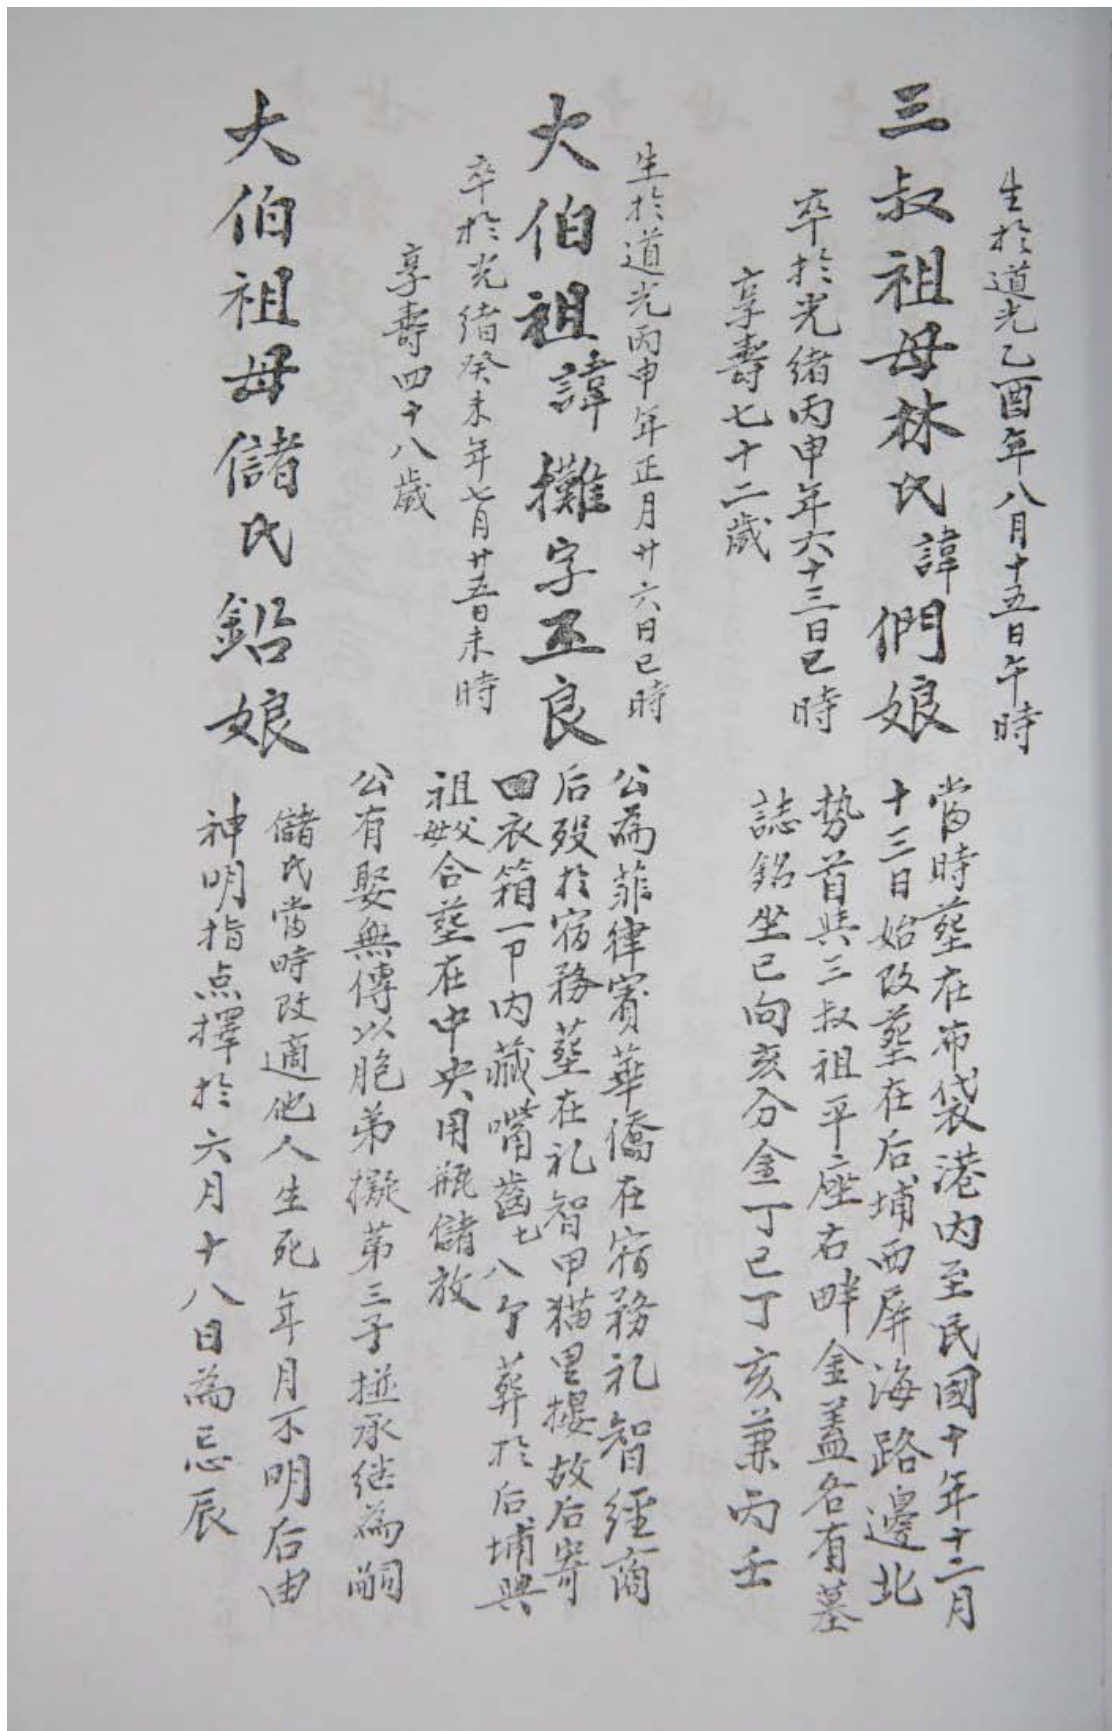 生於道光乙酉年八月十五日午時
三叔祖母林氏諱們娘
卒於光緒丙申年六十三日巳時
享壽七十二歲
當時塟在布袋港内至民國十年十二月
十三日始改塟在后埔西屏海路邊北
势首與三叔祖平座右畔金蓋各有墓
誌銘坐巳向亥分金丁巳丁亥兼丙壬
生於道光丙申年正月廿六日巳時
大伯祖諱攤字丕良
卒於光緒癸未年七月廿五日未時
享壽四十八歲
公為菲律賓華僑在宿務礼智經商
后殁於宿務塟在礼智甲猫里摁故后寄
回衣箱一卩内藏嘴齒七八个葬於后埔與
祖父母合塟在中央用瓶儲放
公有娶無傳以胞弟擬第三子㨗承继為嗣
大伯祖母儲氏鉛娘
儲氏當時改適他人生死年月不明后由
神明指点擇於六月十八日為忌辰